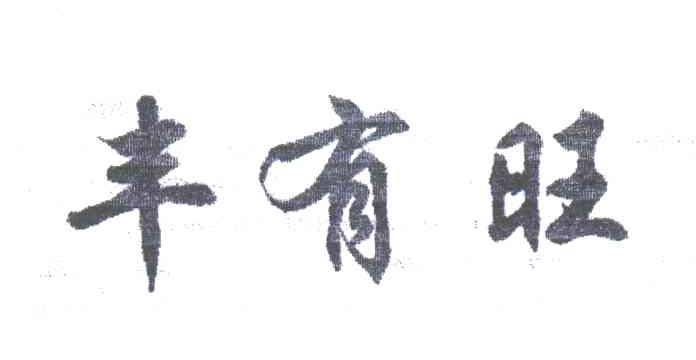 丰有旺